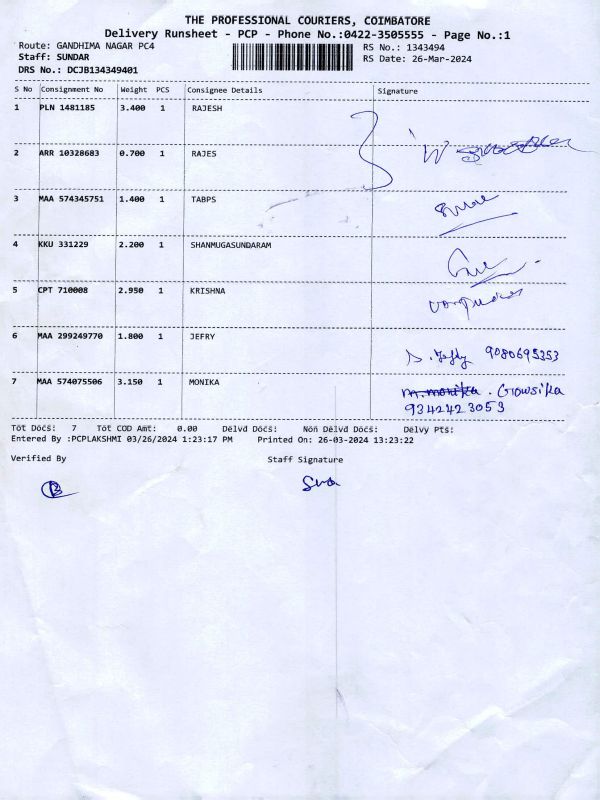 THE PROFESSIONAL COURIERS, COIMBATORE
Delivery Runsheet - PCP - Phone No.:0422-3505555 - Page No.:1
Route: GANDHIMA NAGAR PC4
RS No.: 1343494
Staff: SUNDAR
RS Date: 26-Mar-2024
DRS No.: DCJB134349401
S No Consignment No Weight PCS Consignee Details Signature
1 PLN 1481185 3.400 1 RAJESH
2 ARR 10328683 0.700 1 RAJES
3 MAA 574345751 1.400 1 TABPS
4 KKU 331229 2.200 1 SHANMUGASUNDARAM
5 CPT 710008 2.950 1 KRISHNA
6 MAA 299249770 1.800 1 JEFRY
D. Jefry 9080695353
7 MAA 574075506 3.150 1 MONIKA
m.monika . Gowsika
9342423053
Tot Docs: 7 Tot COD Amt: 0.00 Delvd Docs: Non Delvd Docs: Delvy Pts:
Entered By :PCPLAKSHMI 03/26/2024 1:23:17 PM Printed On: 26-03-2024 13:23:22
Verified By Staff Signature